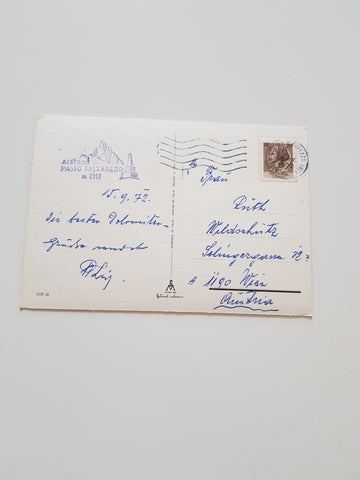 ALBERGO
PASSO FALZAREGO
m 2117
15.9.72.
Die besten Dolomiten-
Grüße sendet
An
Frau
Ruth
Wildschütz
Solingergasse 12
A 1190 Wien
Austria
COR 22